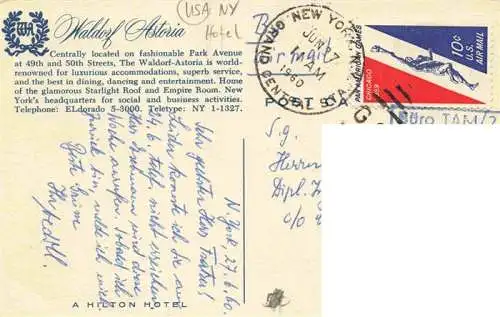 (USA NY
Hotel
Waldorf Astoria
Centrally located on fashionable Park Avenue
at 49th and 50th Streets, The Waldorf-Astoria is world-
renowned for luxurious accommodations, superb service,
and the best in dining, dancing and entertainment. Home
of the glamorous Starlight Roof and Empire Room. New
York's headquarters for social and business activities.
Telephone: ELdorado 5-3000. Teletype: NY 1-1327.
N. York, 27.6.60.
Sehr geehrter Herr
Leider konnte ich Sie am
26.6. telef. nicht erreichen
wird diese
Woche anrufen. Sobald ich
zurück bin, melde ich mich.
Gute Grüsse
Ihr
A HILTON HOTEL
NEW YORK
JUN 27
AM
1960
GRAND CENTRAL STA.
POST
PAN AMERICAN GAMES
CHICAGO
10¢
U.S.
AIR MAIL
Büro TAM/
S.g.
Herrn
Dipl.
c/o